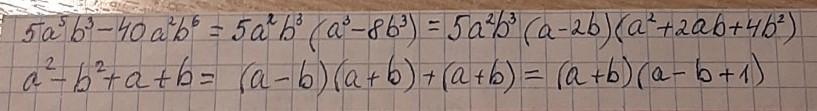 5a⁵b³-40a²b⁶ = 5a²b³(a³-8b³) = 5a²b³(a-2b)(a²+2ab+4b²)
a²-b²+a+b = (a-b)(a+b)+(a+b) = (a+b)(a-b+1)